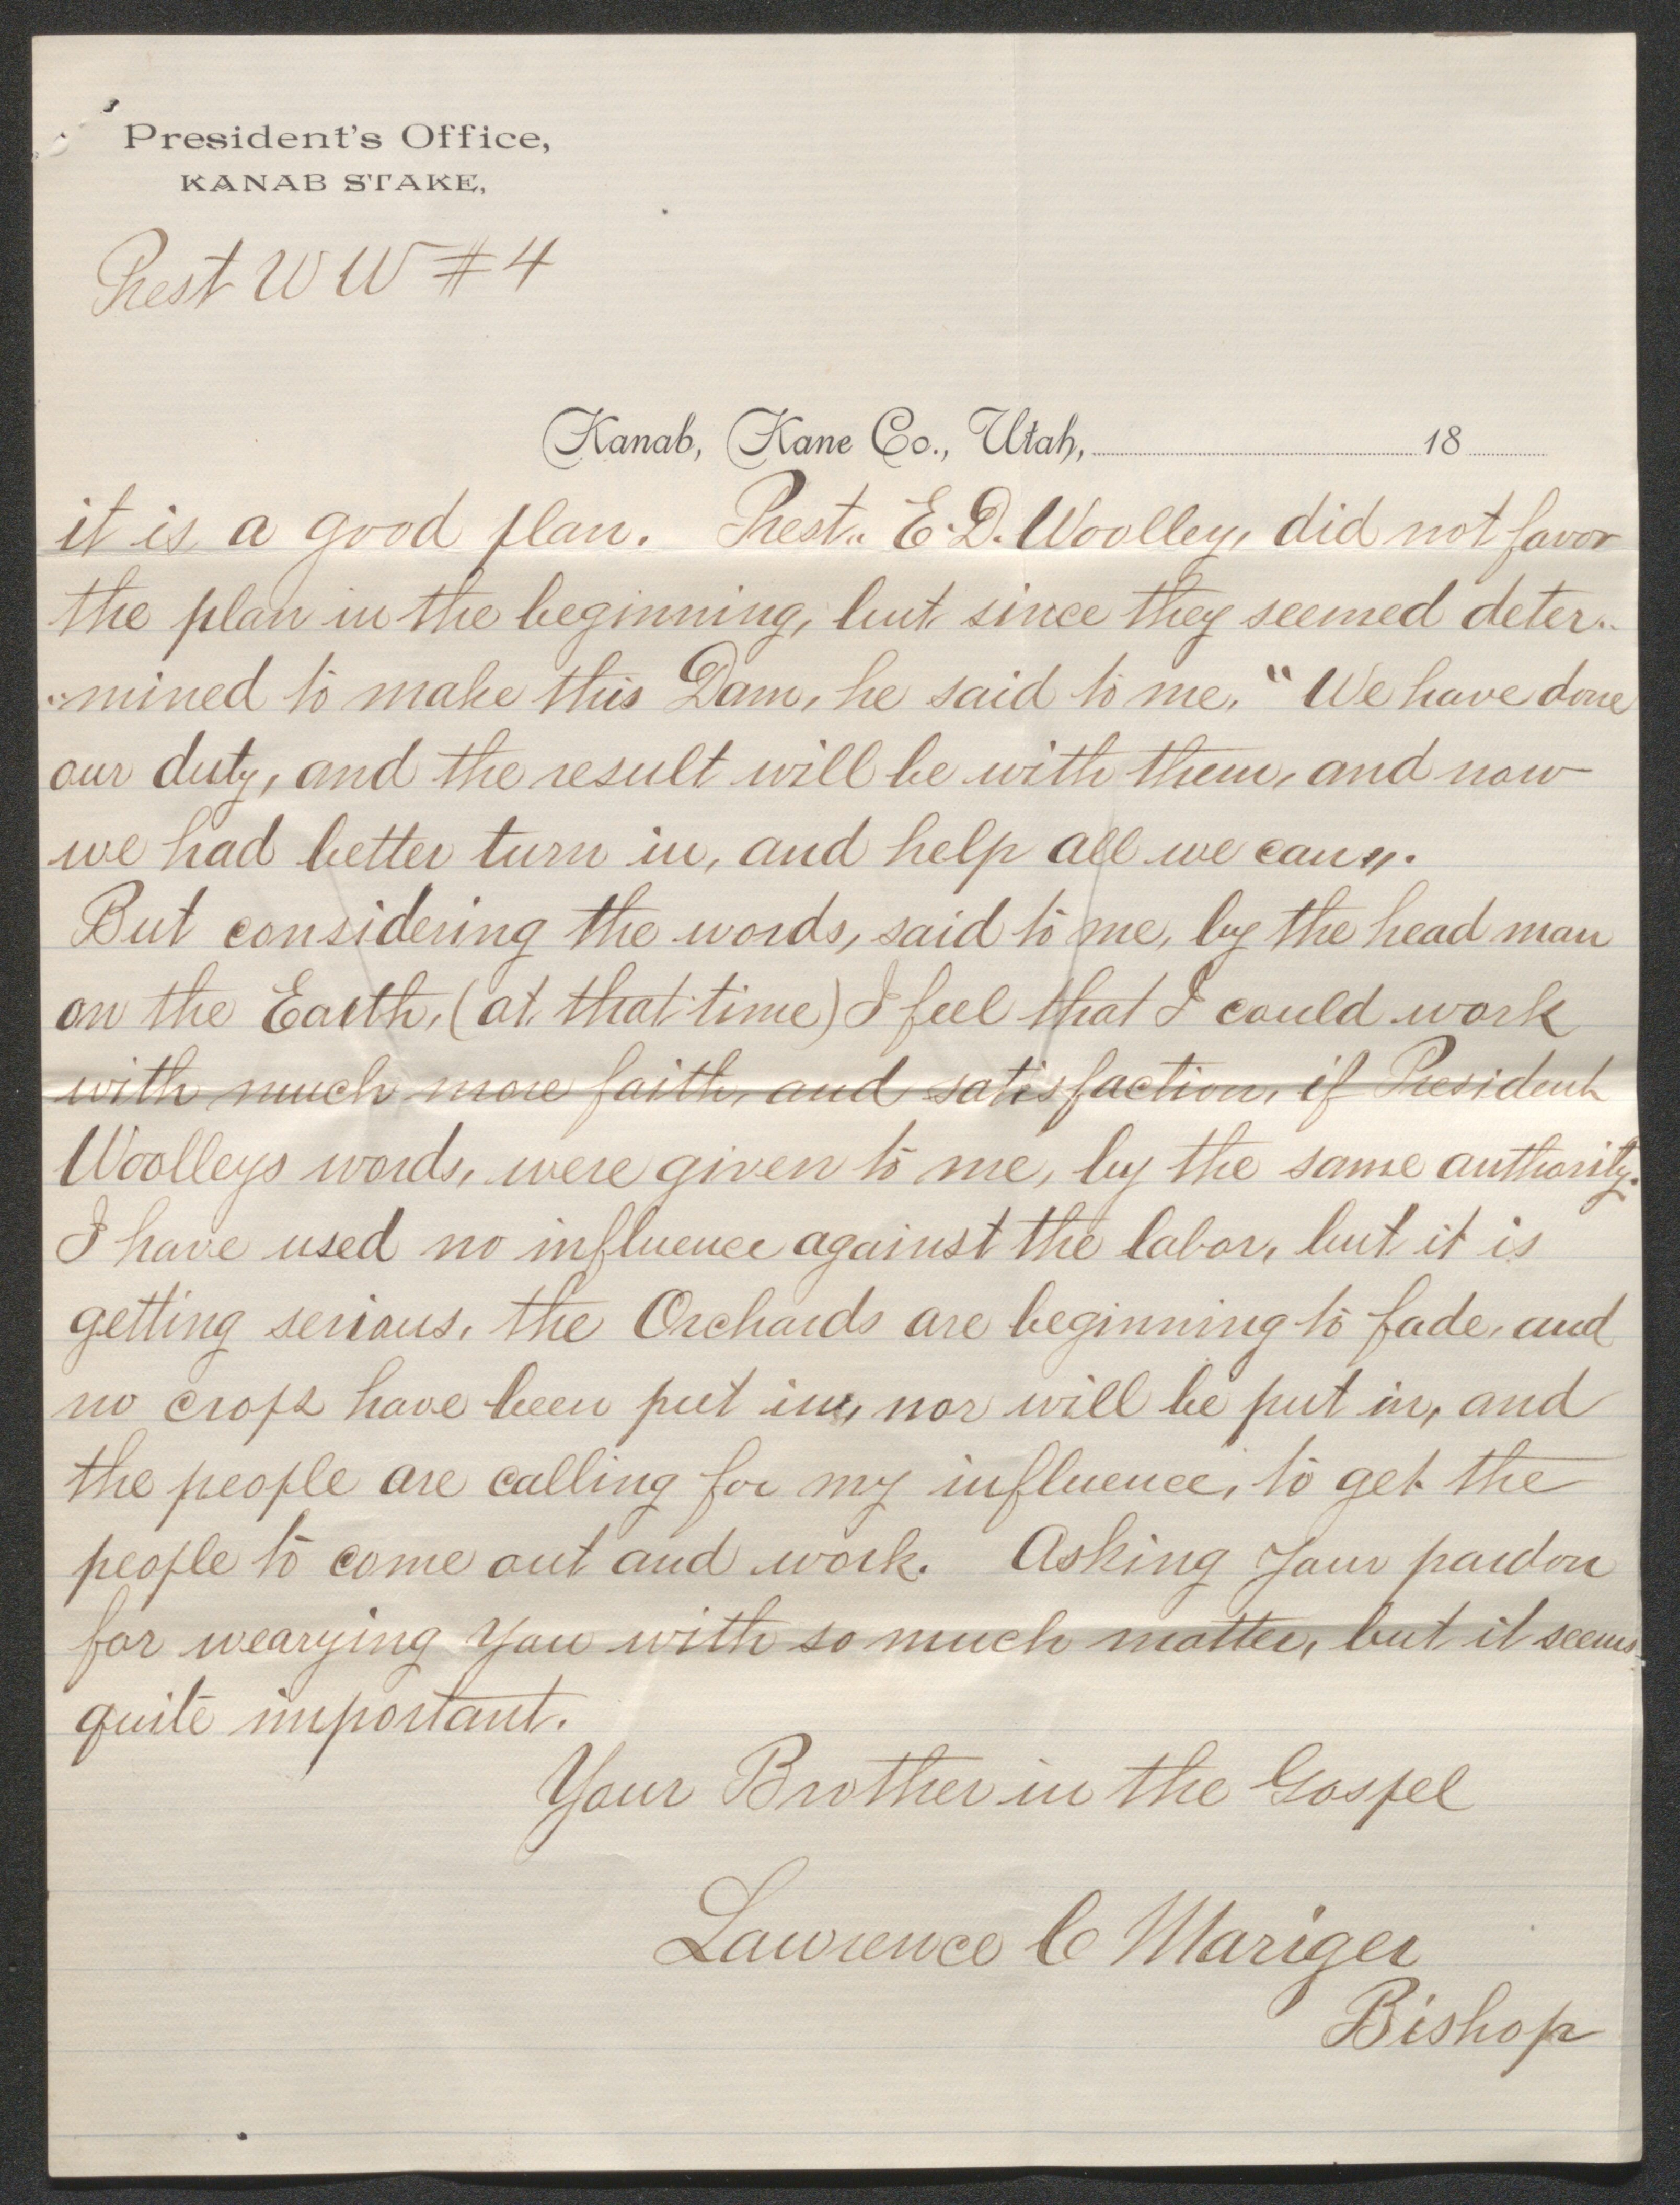 President's Office,
KANAB STAKE,
Prest W W #4
Kanab, Kane Co., Utah, 18
it is a good plan. Prest.. E. D. Woolley, did not favor
the plan in the beginning, but since they seemed deter..
..mined to make this Dam, he said to me, "We have done
our duty, and the result will be with them, and now
we had better turn in, and help all we can".
But considering the words, said to me, by the head man
on the Earth, (at that time) I feel that I could work
with much more faith, and satisfaction, if President
Woolleys words, were given to me, by the same authority.
I have used no influence against the labor, but it is
getting serious, the Orchards are beginning to fade, and
no crops have been put in, nor will be put in, and
the people are calling for my influence, to get the
people to come out and work. Asking your pardon
for wearying you with so much matter, but it seems
quite important.
Your Brother in the Gospel
Lawrence C Mariger
Bishop